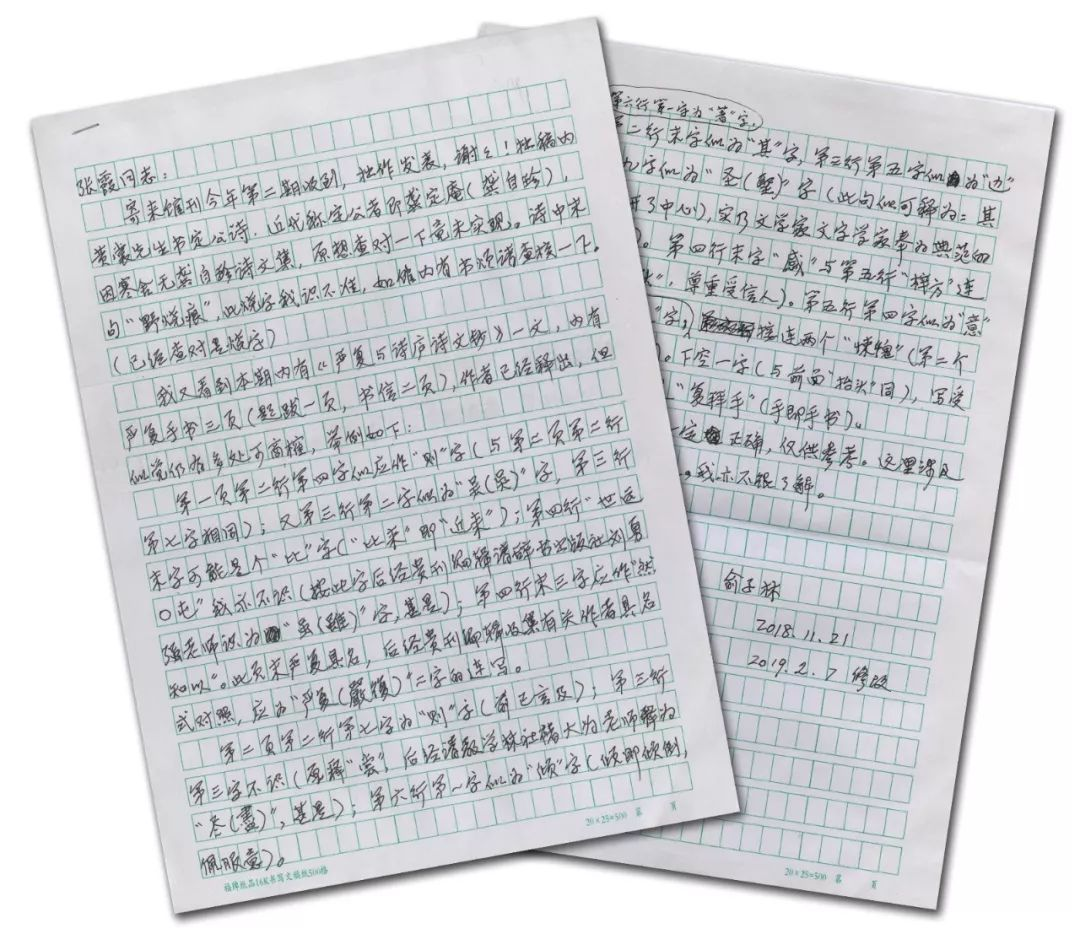 张霞同志：
寄来馆刊今年第二期收到，拙作发表，谢々！拙稿内
黄裳先生书定公诗，近代称定公者即龚定庵（龚自珍），
因寒舍无龚自珍诗文集，原想查对一下竟未实现。诗中末
句“野烧痕”，此烧字我识不准，如馆内有书烦请查核一下。
（已经查对是烧字）
我又看到本期内有《严复与诗庐诗文钞》一文，内有
严复手书三页（题跋一页，书信二页），作者已经释出，但
似觉仍有多处可商榷，举例如下：
第一页第二行第四字似应作“则”字（与第二页第二行
第七字相同）；又第三行第二字似为“吴（吳）”字，第三行
末字可能是个“比”字（“比来”即“近来”）；第四行“世运
〇屯”我亦不识（按此字后经贵刊编辑请辞书出版社刘勇
强老师识为“虽（雖）”字，甚是）；第四行末三字应作“然
知以”。此页末严复具名，后经贵刊编辑收集有关作者具名
式对照，应为“严复（嚴復）”二字的连写。
第二页第二行第七字为“则”字（前已言及）；第三行
第三字不识（原释“尝”，后经请教学林社褚大为老师释为
“尽（盡）”，甚是）；第六行第一字似为“倾”字（倾即倾倒，
佩服意）。
福牌纸品16K书写文稿纸500格
20×25=500 第 页
第六行第一字为“著”字，
第二行末字似为“其”字，第三行第五字似为“也”
九字似为“圣（聖）”字（此句似可释为：其
开了中心），实仍文学家文字学家奉为典范的
）。第四行末字“感”与第五行“梓方”连
”，尊重受信人）。第五行第四字似为“意”
“字），接连两个“悚愧”（第二个
。下空一字（与前面“抬头”同），写受
“复拜手”（手即手书）。
一定正确，仅供参考。这里涉及
，我亦不很了解。
俞子林
2018.11.21
2019.2.7 修改
20×25=500 第 页